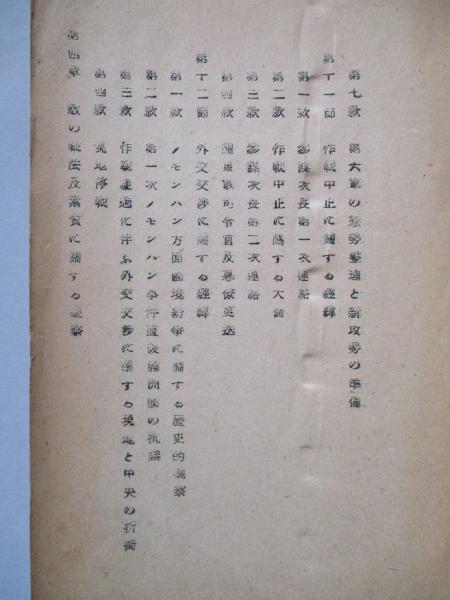 第七款 第六軍の態勢整理と新攻勢の準備
第十一節 作戦中止に関する経緯
第一款 参謀次長第一次連絡
第二款 作戦中止に関する大命
第三款 参謀次長第二次連絡
第四款 関東軍司令官及幕僚更迭
第十二節 外交交渉に関する経緯
第一款 ノモンハン方面国境紛争に関する歴史的観察
第二款 第一次ノモンハン事件直後満洲国の抗議
第三款 作戦推過に伴ふ外交交渉に関する現地と中央の折衝
第四款 現地停戦
第四章 敵の戦法及素質に関する観察